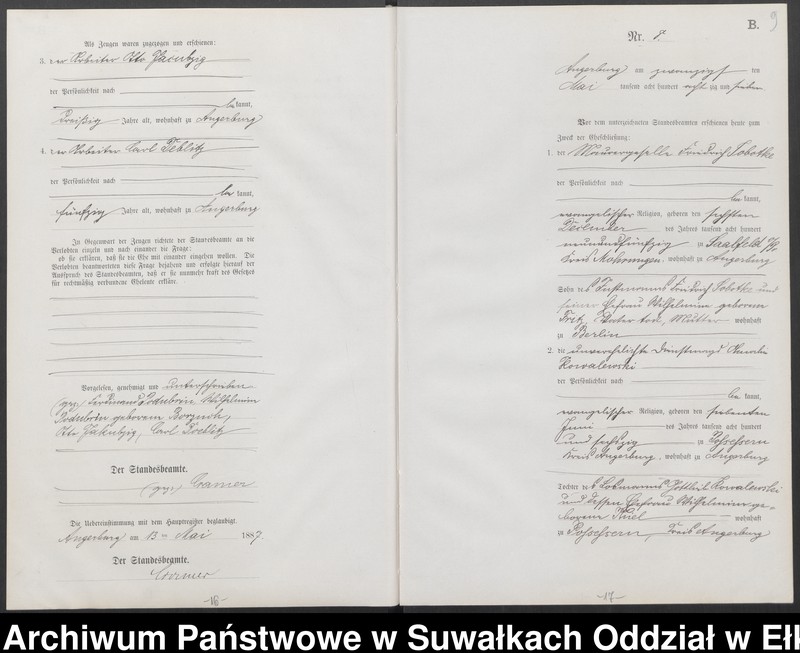 Als Zeugen waren zugezogen und erschienen:
3. der Arbeiter Otto Jakubzig
der Persönlichkeit nach
be kannt,
dreißig Jahre alt, wohnhaft zu Angerburg
4. der Arbeiter Carl
der Persönlichkeit nach
be kannt,
fünfzig Jahre alt, wohnhaft zu Angerburg
In Gegenwart der Zeugen richtete der Standesbeamte an die
Verlobten einzeln und nach einander die Frage:
ob sie erklären, daß sie die Ehe mit einander eingehen wollen. Die
Verlobten beantworteten diese Frage bejahend und erfolgte hierauf der
Ausspruch des Standesbeamten, daß er sie nunmehr kraft des Gesetzes
für rechtmäßig verbundene Eheleute erkläre.
Vorgelesen, genehmigt und unterschrieben
(gez.) Ferdinand Wilhelmine
geborene
Otto Jakubzig, Carl
Der Standesbeamte.
(gez.) Cramer
Die Uebereinstimmung mit dem Hauptregister beglaubigt
Angerburg am 13ten Mai 1887.
Der Standesbeamte.
Cramer
-16-
B. 9
Nr. 8.
Angerburg am zwanzigsten
Mai tausend acht hundert acht zig und sieben
Vor dem unterzeichneten Standesbeamten erschienen heute zum
Zweck der Eheschließung:
1. der Maurergeselle Friedrich Sobotke
der Persönlichkeit nach
be kannt,
evangelischer Religion, geboren den sechsten
Dezember des Jahres tausend acht hundert
neunundfünfzig zu Saalfeld
Kreis Mohrungen, wohnhaft zu Angerburg
Sohn des Friedrich Sobotke und
seiner Ehefrau Wilhelmine geborene
Fritz, Vater tod, Mutter wohnhaft
zu Berlin
2. die unverehelichte Dienstmagd Amalie
Kowalewski
der Persönlichkeit nach
be kannt,
evangelischer Religion, geboren den siebenten
Juni des Jahres tausend acht hundert
und sechszig zu Possessern
Kreis Angerburg, wohnhaft zu Angerburg
Tochter des Losmanns Gottlieb Kowalewski
und dessen Ehefrau Wilhelmine ge-
borene Thiel wohnhaft
zu Possessern, Kreis Angerburg
-17-
Archiwum Państwowe w Suwałkach Oddział w Ełk